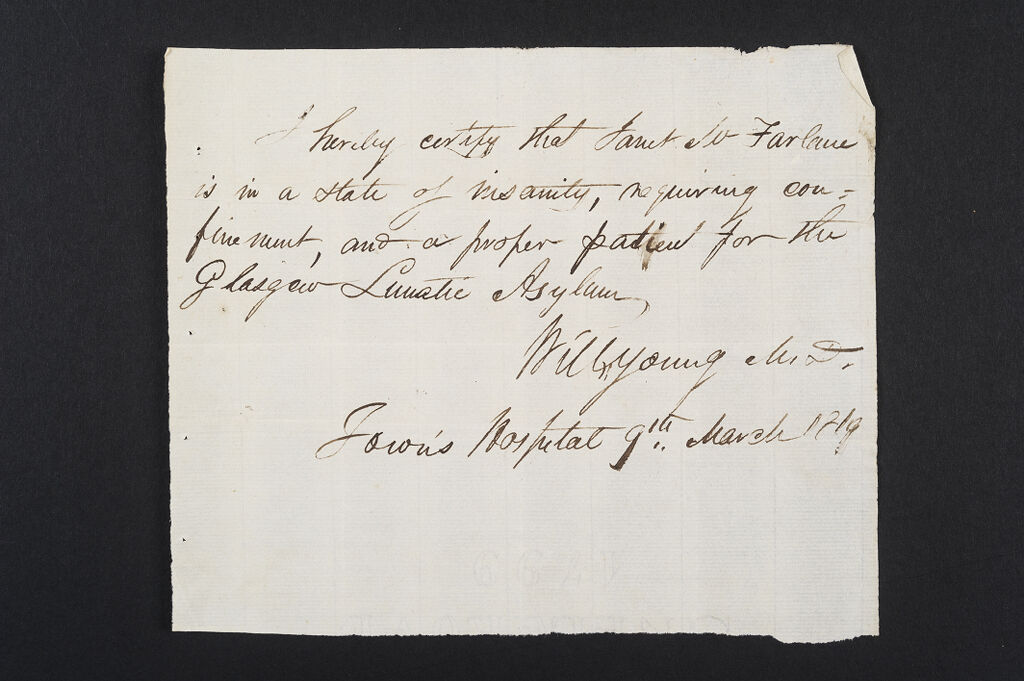 I hereby certify that Janet Mc Farlane
is in a state of insanity, requiring con=
finement, and a proper patient for the
Glasgow Lunatic Asylum,
Willm Young M.D.
Town's Hospital 9th. March 1819